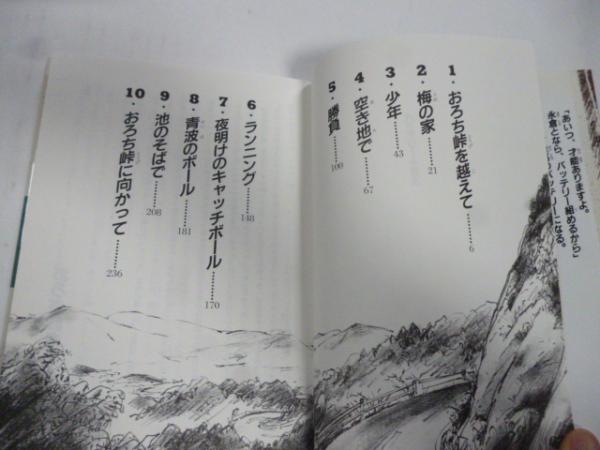 「あいつ、才能ありますよ。
永倉となら、バッテリー組めるから」
バッテリーになる。
1・おろち峠を越えて………6
2・梅の家………21
3・少年………43
4・空き地で………67
5・勝負………100
6・ランニング………148
7・夜明けのキャッチボール………170
8・青波のボール………181
9・池のそばで………208
10・おろち峠に向かって………236